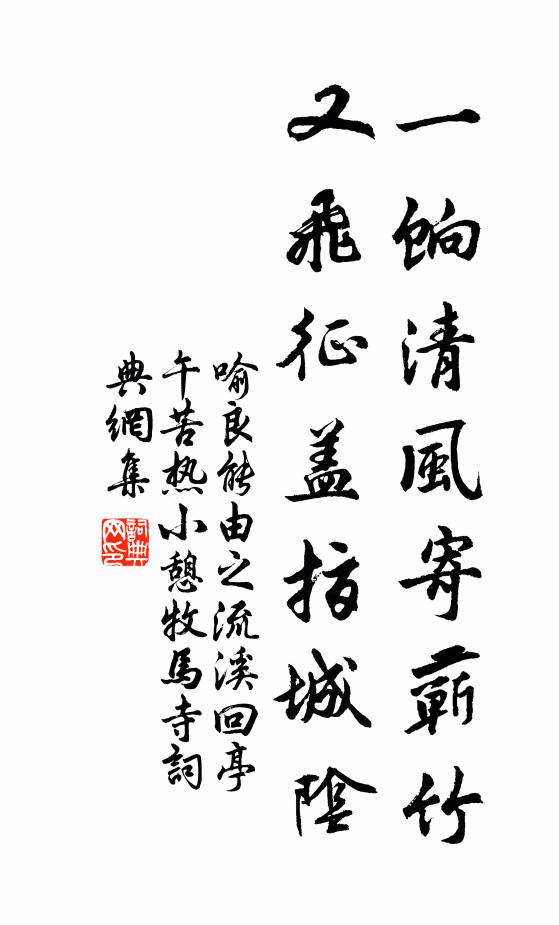 一餉清風寄蘄竹
又飛征蓋指城陰
喻良能由之流溪回亭
午苦热小憩牧馬寺詞
典網集
詞典
网印